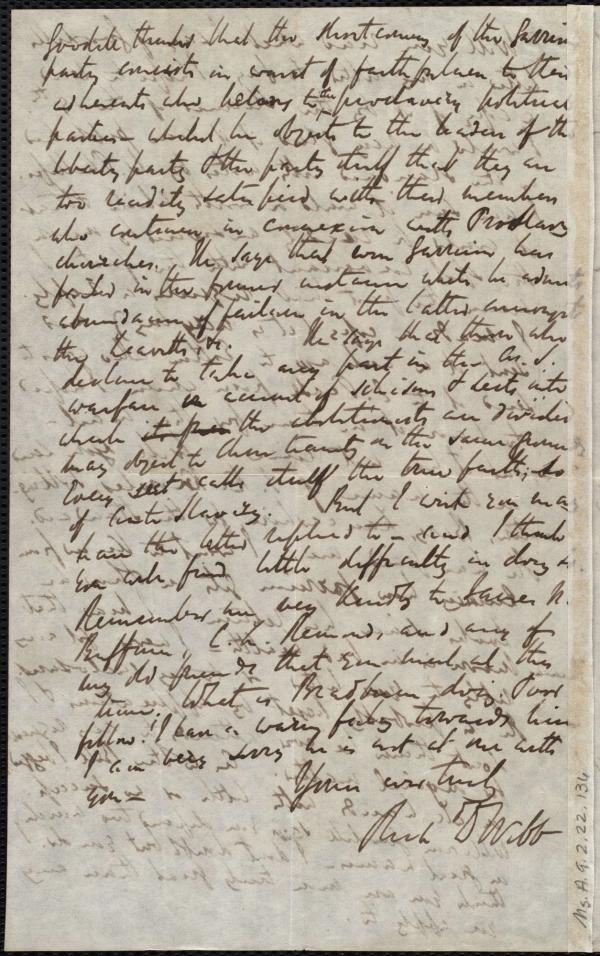 Goodell thinks that the shortcoming of the Garrison
party consists in want of faithfulness to their
adherents who belong to the proslavery political
parties – whilst he objects to the leaders of the
liberty party & the party itself that they are
too readily satisfied with their members
who continue in connexion with Proslavery
churches. He says that even Garrison has
failed in the former instance whilst he admits
abundance of failure in the latter amongst
the Leavitts &c. He says that those who
decline to take any part in the A. S.
warfare on account of schisms & sects into
which the abolitionists are divided
may object to Christianity on the same ground
Every sect calls itself the true faith; so
of Anti Slavery. But I wish you may
have the letter replied to – and I think
you will find little difficulty in doing
Remember me very kindly to James N.
Buffum, C. L. Remond, and any of
my old friends that you meet at this
time. What is Bradburn doing. Poor
fellow! I have a warm feeling towards him
I am very sorry he is not at one with
you –
Yours ever truly
Rich D Webb
Ms. A. 9. 2. 22. 134